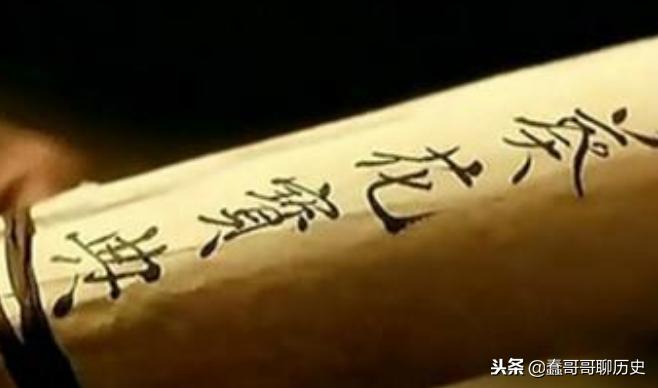 葵花寳典
头条 @蠢哥哥聊历史